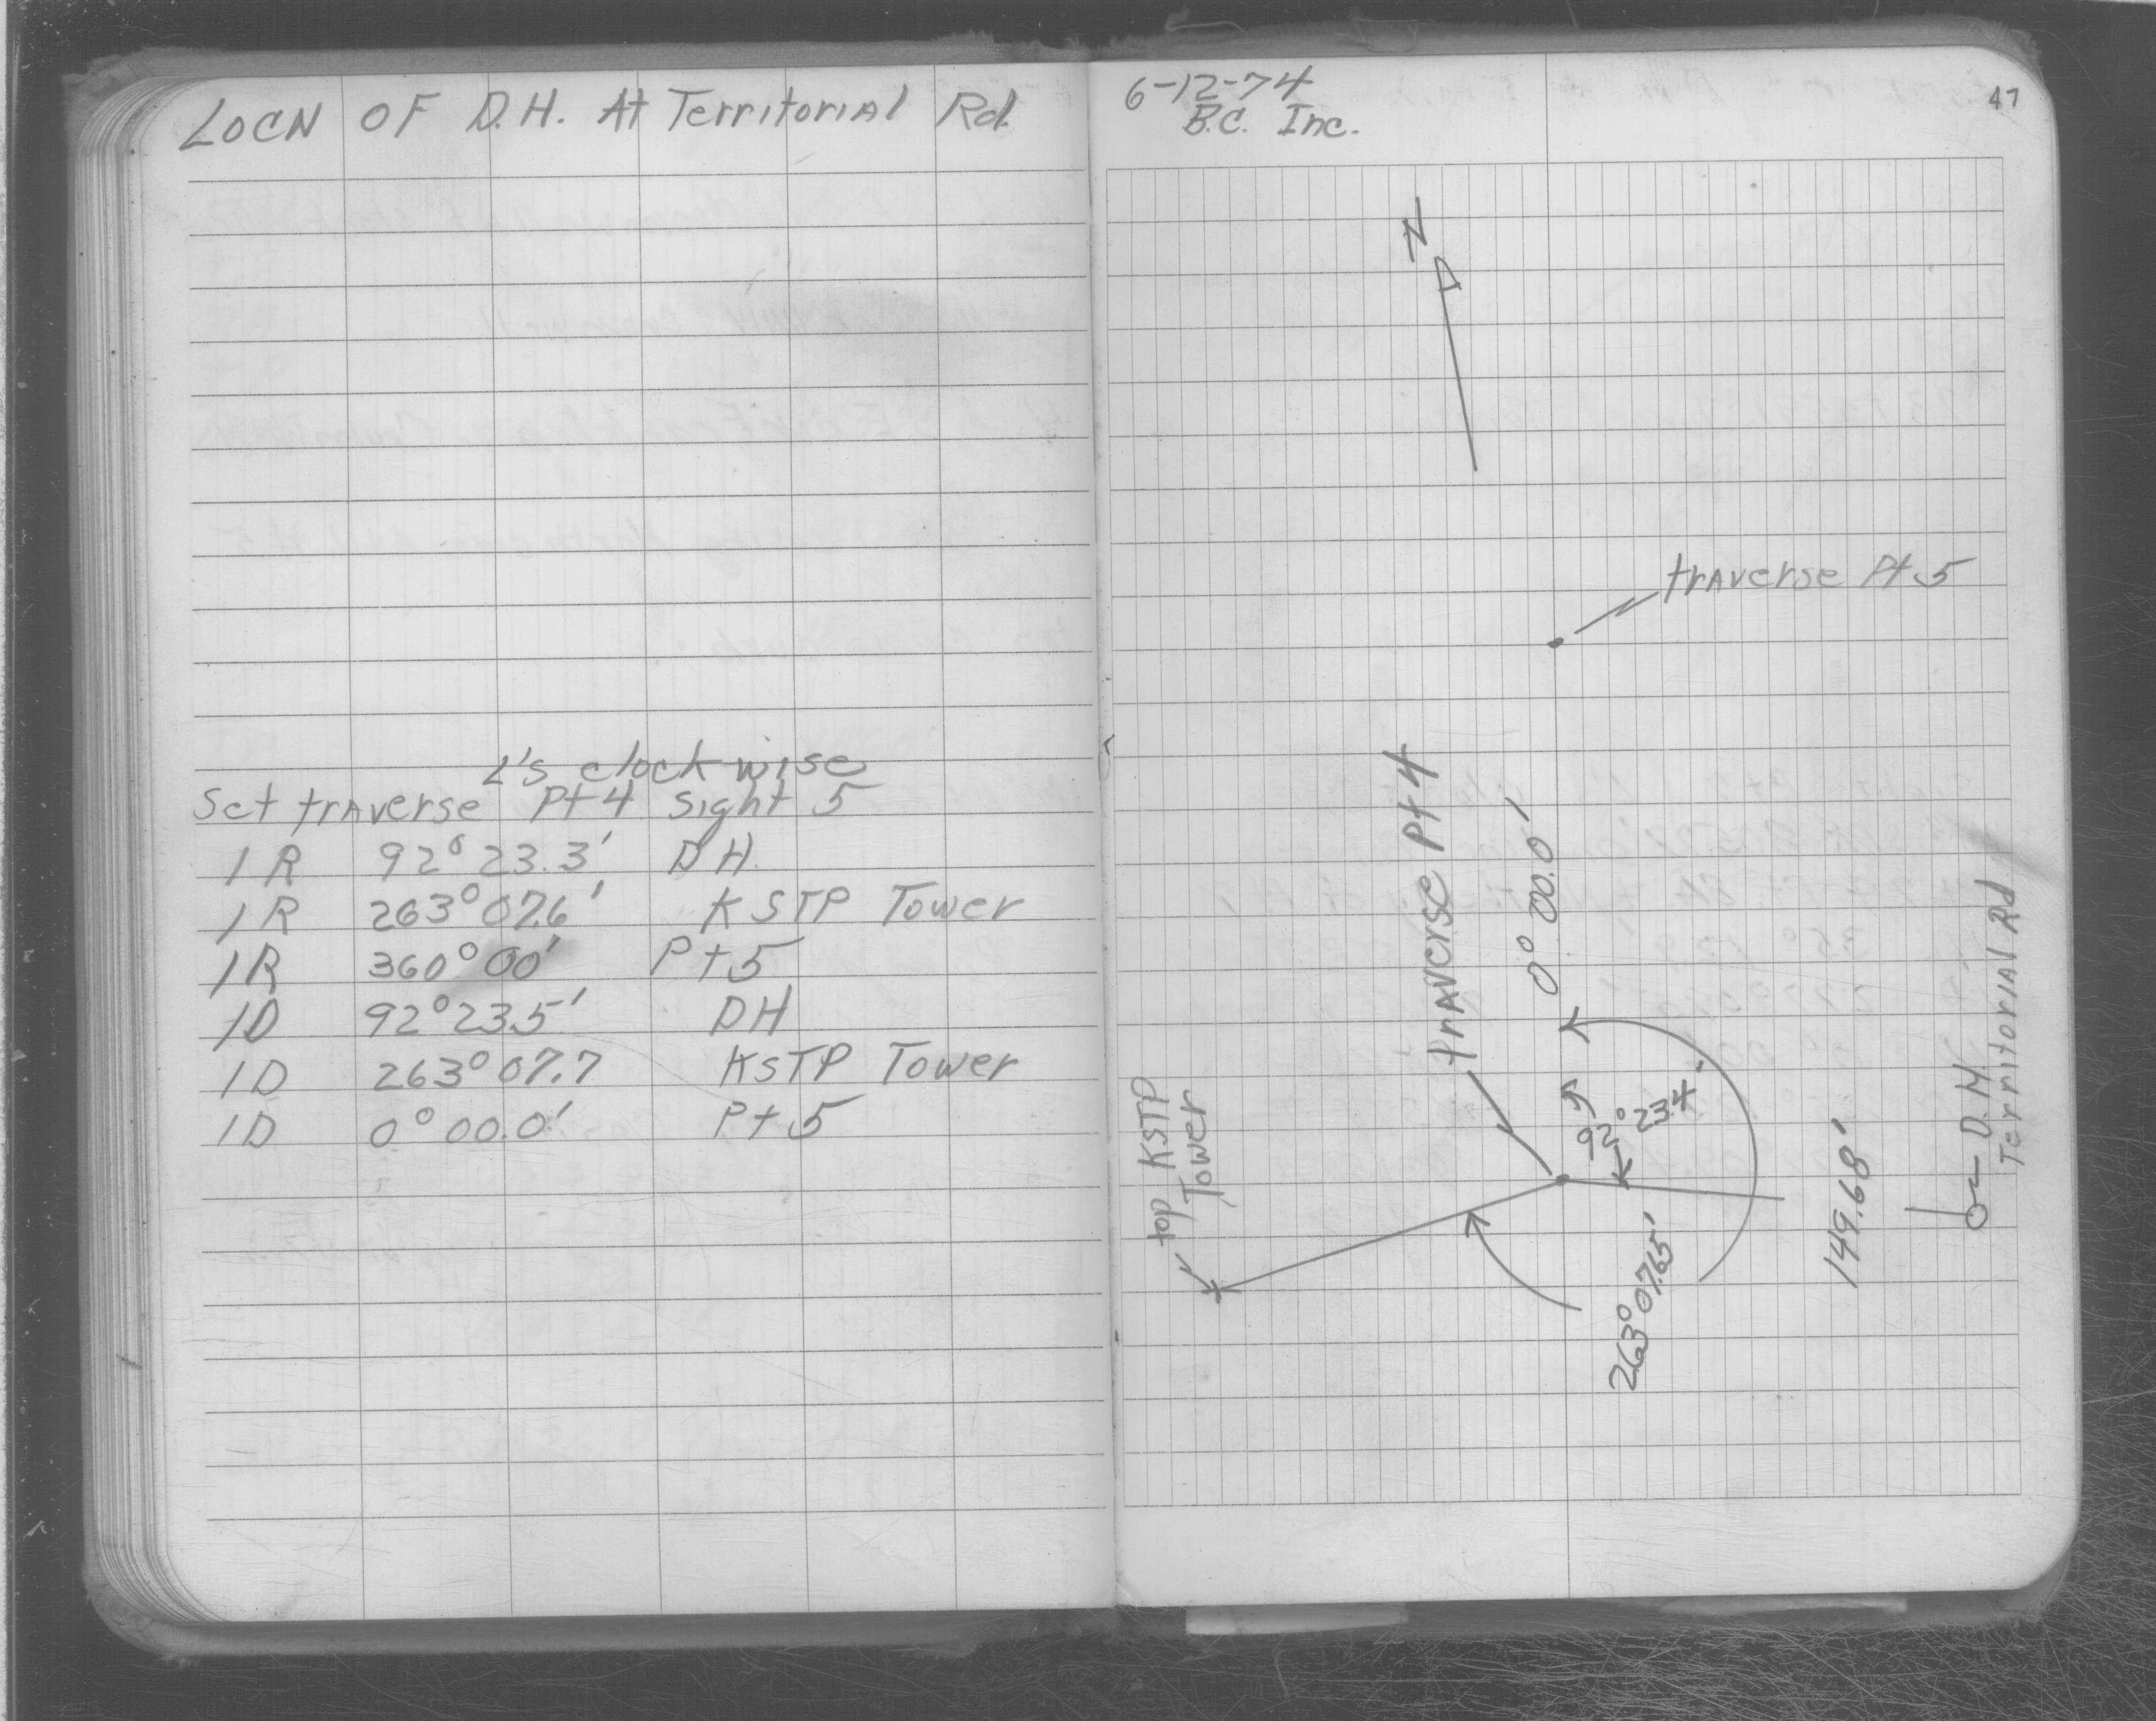 LOCN OF D.H. At Territorial Rd.
∠'s clockwise
Set traverse Pt 4 Sight 5
1R 92° 23.3' DH.
1R 263° 07.6' KSTP Tower
1R 360° 00' Pt 5
1D 92° 23.5' DH
1D 263° 07.7 KSTP Tower
1D 0° 00.0' Pt 5
6-12-74
B.C. Inc.
47
N
traverse Pt 5
traverse Pt 4
0° 00.0'
92° 23.4'
263° 07.65'
149.68'
top KSTP
Tower
D.H.
Territorial Rd